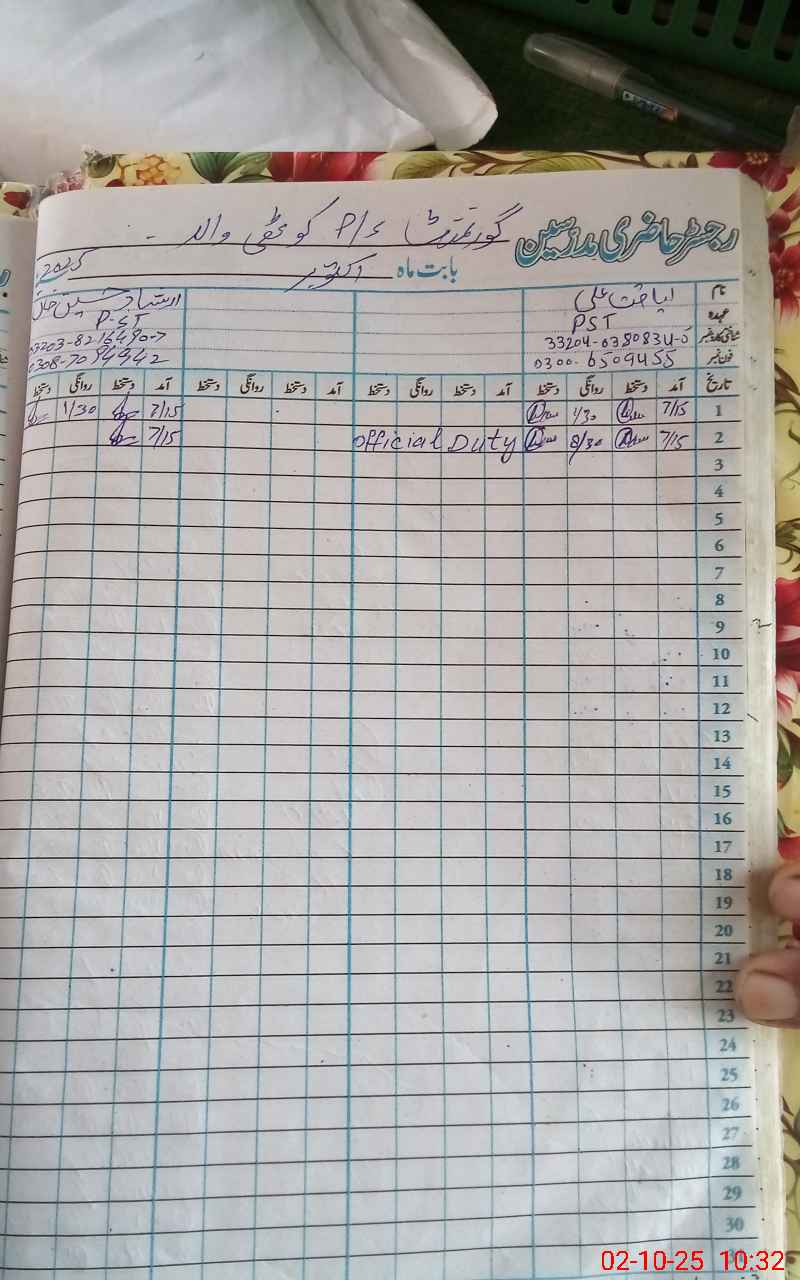 رجسٹر حاضری مدرسین گورنمنٹ P/S کوٹلی والہ
بابت ماہ اکتوبر 2025ء
نام لیاقت علی ارشاد حسین خان
عہدہ PST P-ST
شناختی کارڈ نمبر 33204-0380834-5 33203-8216490-7
فون نمبر 0300-6509455 0308-7094942
تاریخ آمد دستخط روانگی دستخط آمد دستخط روانگی دستخط آمد دستخط روانگی دستخط آمد دستخط روانگی دستخط
1 7/15 1/30 7/15 1/30
2 7/15 8/30 Official Duty 7/15
3
4
5
6
7
8
9
10
11
12
13
14
15
16
17
18
19
20
21
22
23
24
25
26
27
28
29
30
31
02-10-25 10:32